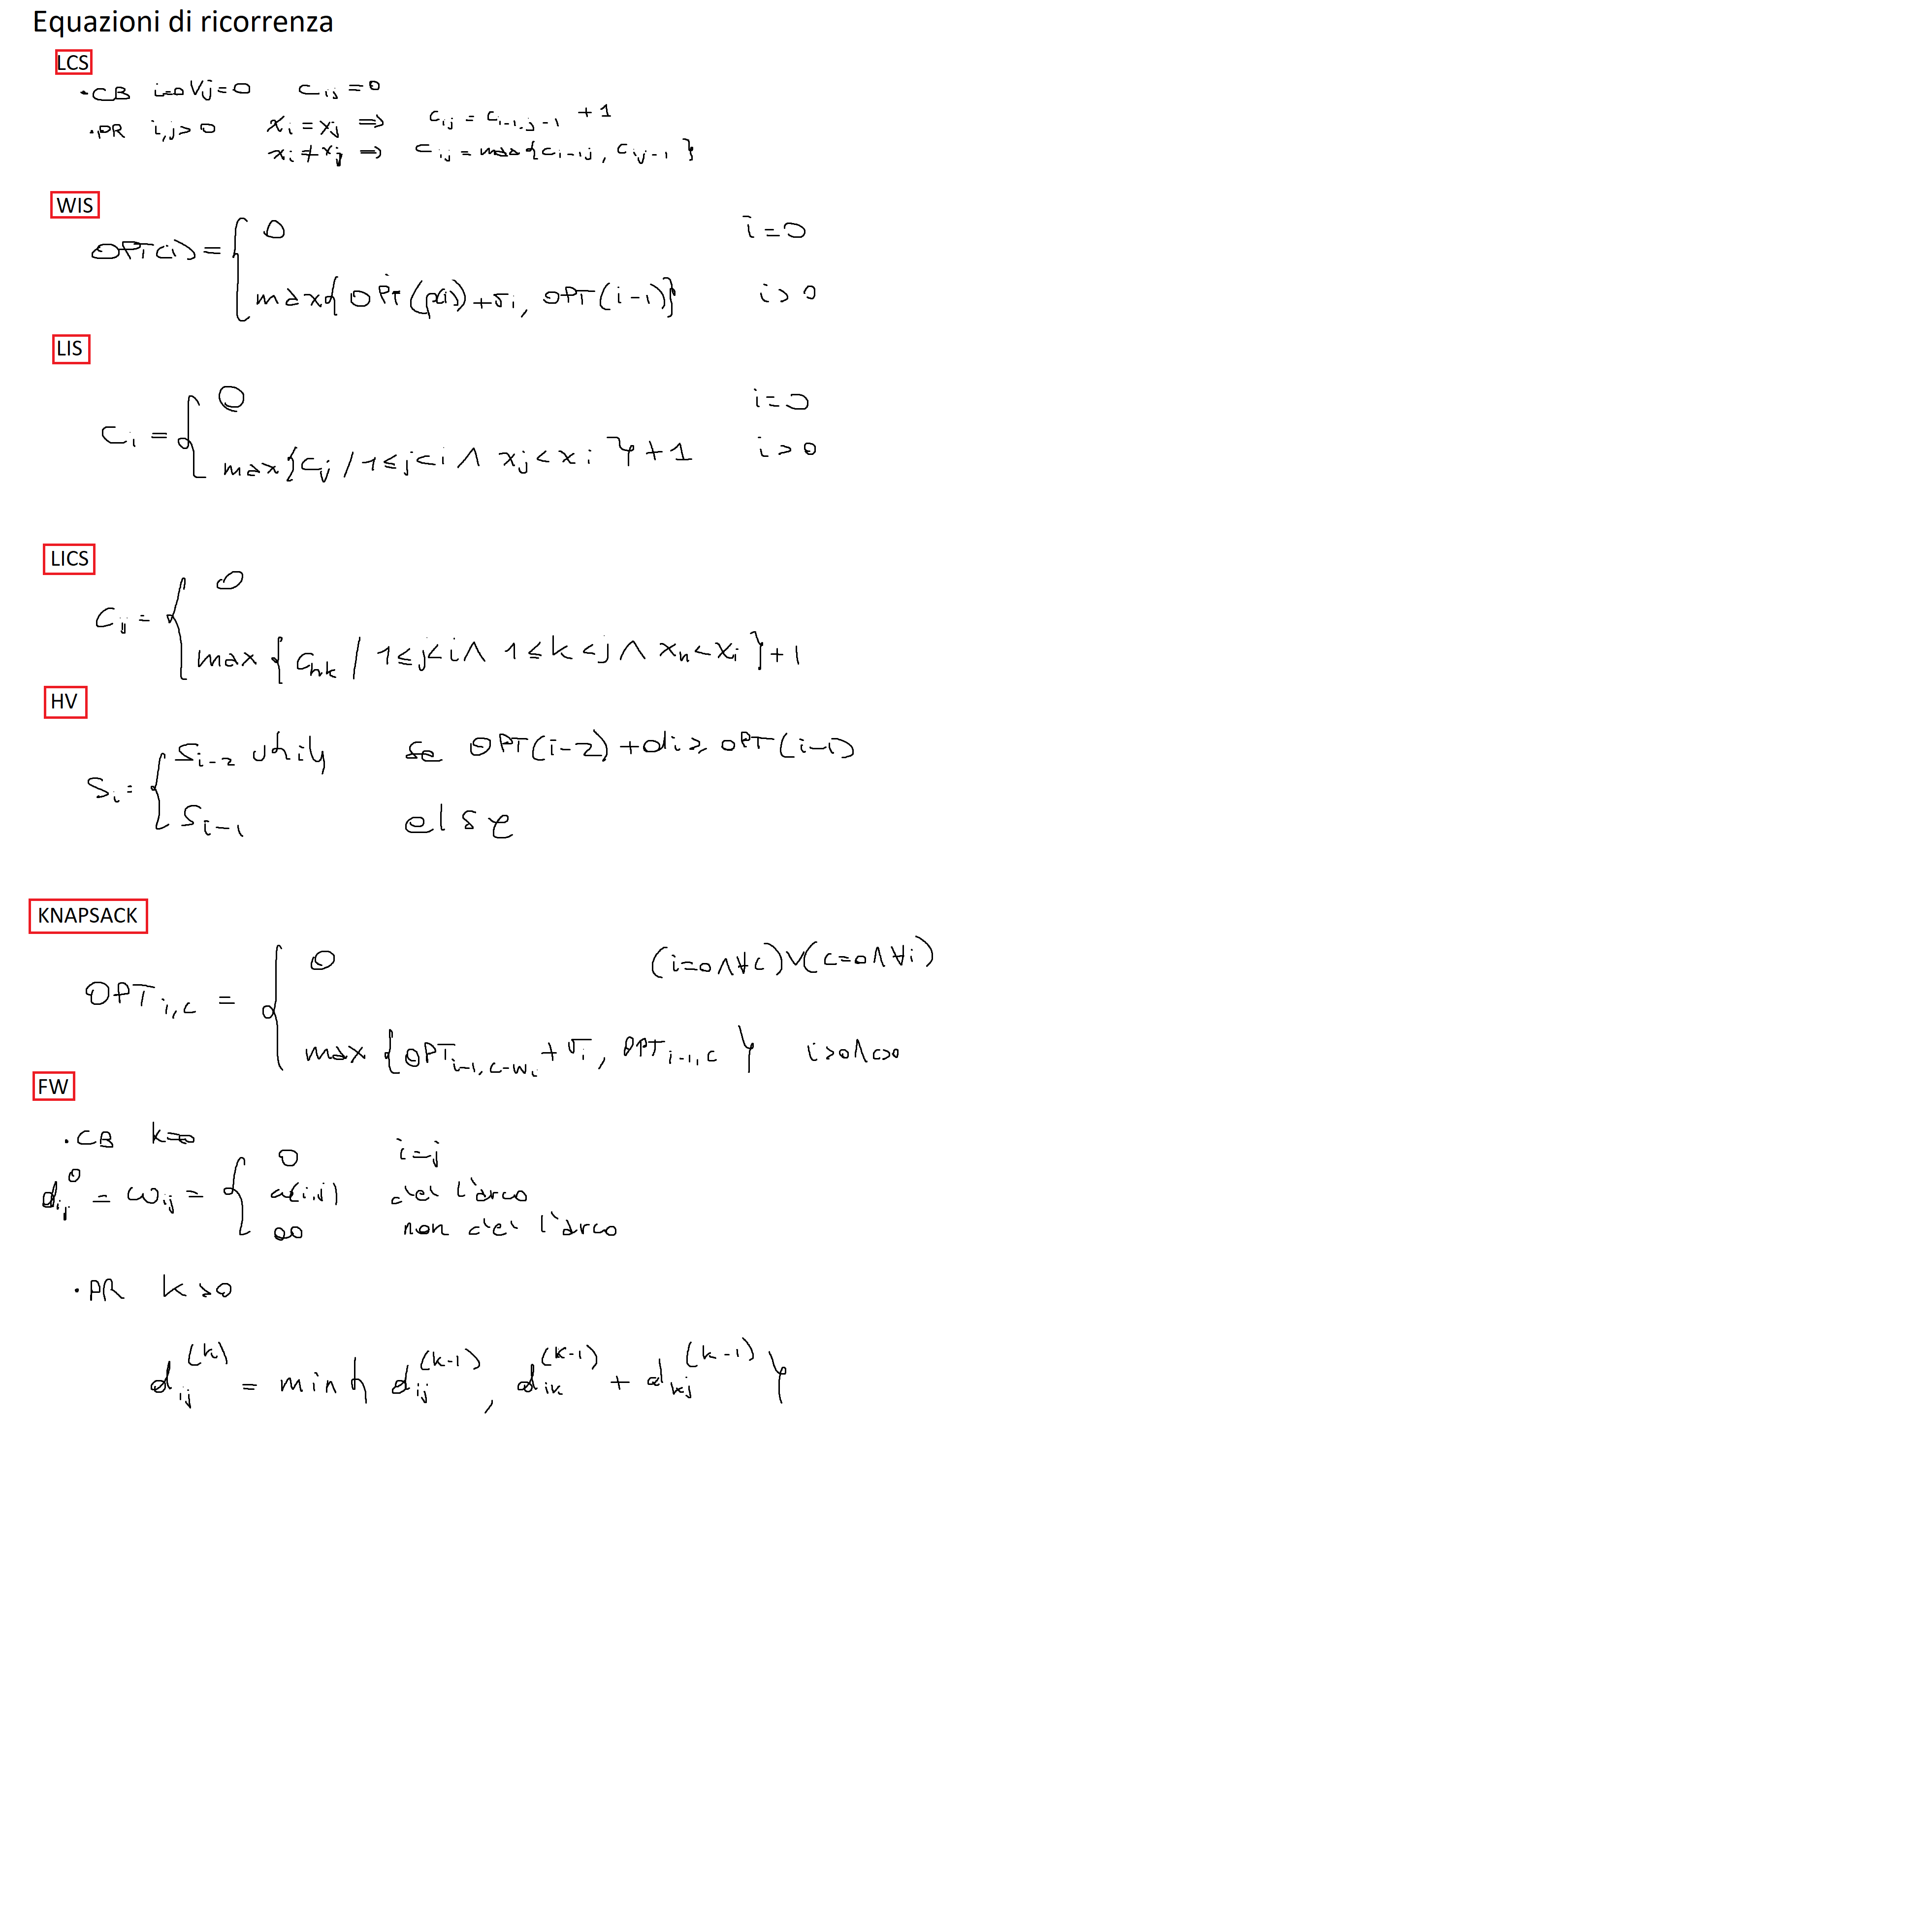 Equazioni di ricorrenza
LCS
• CB i=0 ∨ j=0 c_ij = 0
• PR i,j > 0 x_i = x_j ⇒ c_ij = c_i-1,j-1 + 1
x_i ≠ x_j ⇒ c_ij = max{c_i-1j, c_ij-1}
WIS
OPT(i) = { 0 i=0
max{OPT(p(i)) + v_i, OPT(i-1)} i>0
LIS
c_i = { 0 i=0
max{c_j / 1≤j<i ∧ x_j<x_i} + 1 i>0
LICS
c_ij = { 0
max{c_hk / 1≤j<i ∧ 1≤k<j ∧ x_h<x_i} + 1
HV
S_i = { S_i-2 U{i} se OPT(i-2) + d_i ≥ OPT(i-1)
S_i-1 else
KNAPSACK
OPT_i,c = { 0 (i=0 ∧ ∀c) ∨ (c=0 ∧ ∀i)
max{OPT_i-1,c-w_i + v_i, OPT_i-1,c} i>0 ∧ c>0
FW
• CB k=0
d_ij^0 = w_ij = { 0 i=j
a(i,j) c'è l'arco
∞ non c'è l'arco
• PR k>0
d_ij^(k) = min{d_ij^(k-1), d_ik^(k-1) + d_kj^(k-1)}